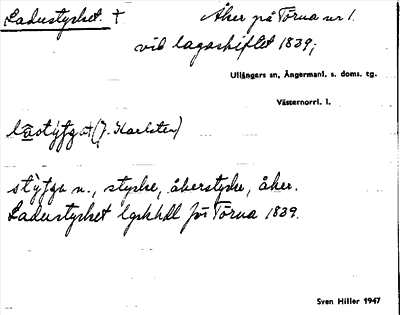 Ladustycket. † Åker på Törna nr 1.
vid lagaskiftet 1839;
Ullångers sn, Ångermanl. s. doms. tg.
Västernorrl. l.
(J. Karlsten)
n., stycke, åkerstycke, åker.
Ladustycket lgskhdl för Törna 1839.
Sven Hiller 1947